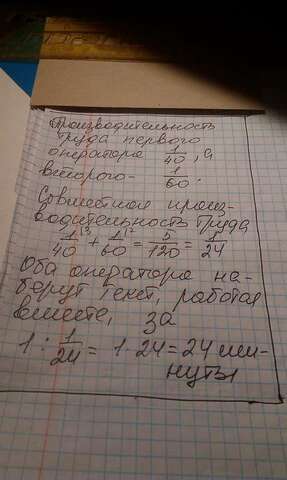 Производительность
труда первого
оператора 1/40, а
второго - 1/60.
Совместная произ-
водительность труда
1/40 ³ + 1/60 ² = 5/120 = 1/24
Оба оператора на-
берут текст, работая
вместе, за
1 : 1/24 = 1·24 = 24 ми-
нуты